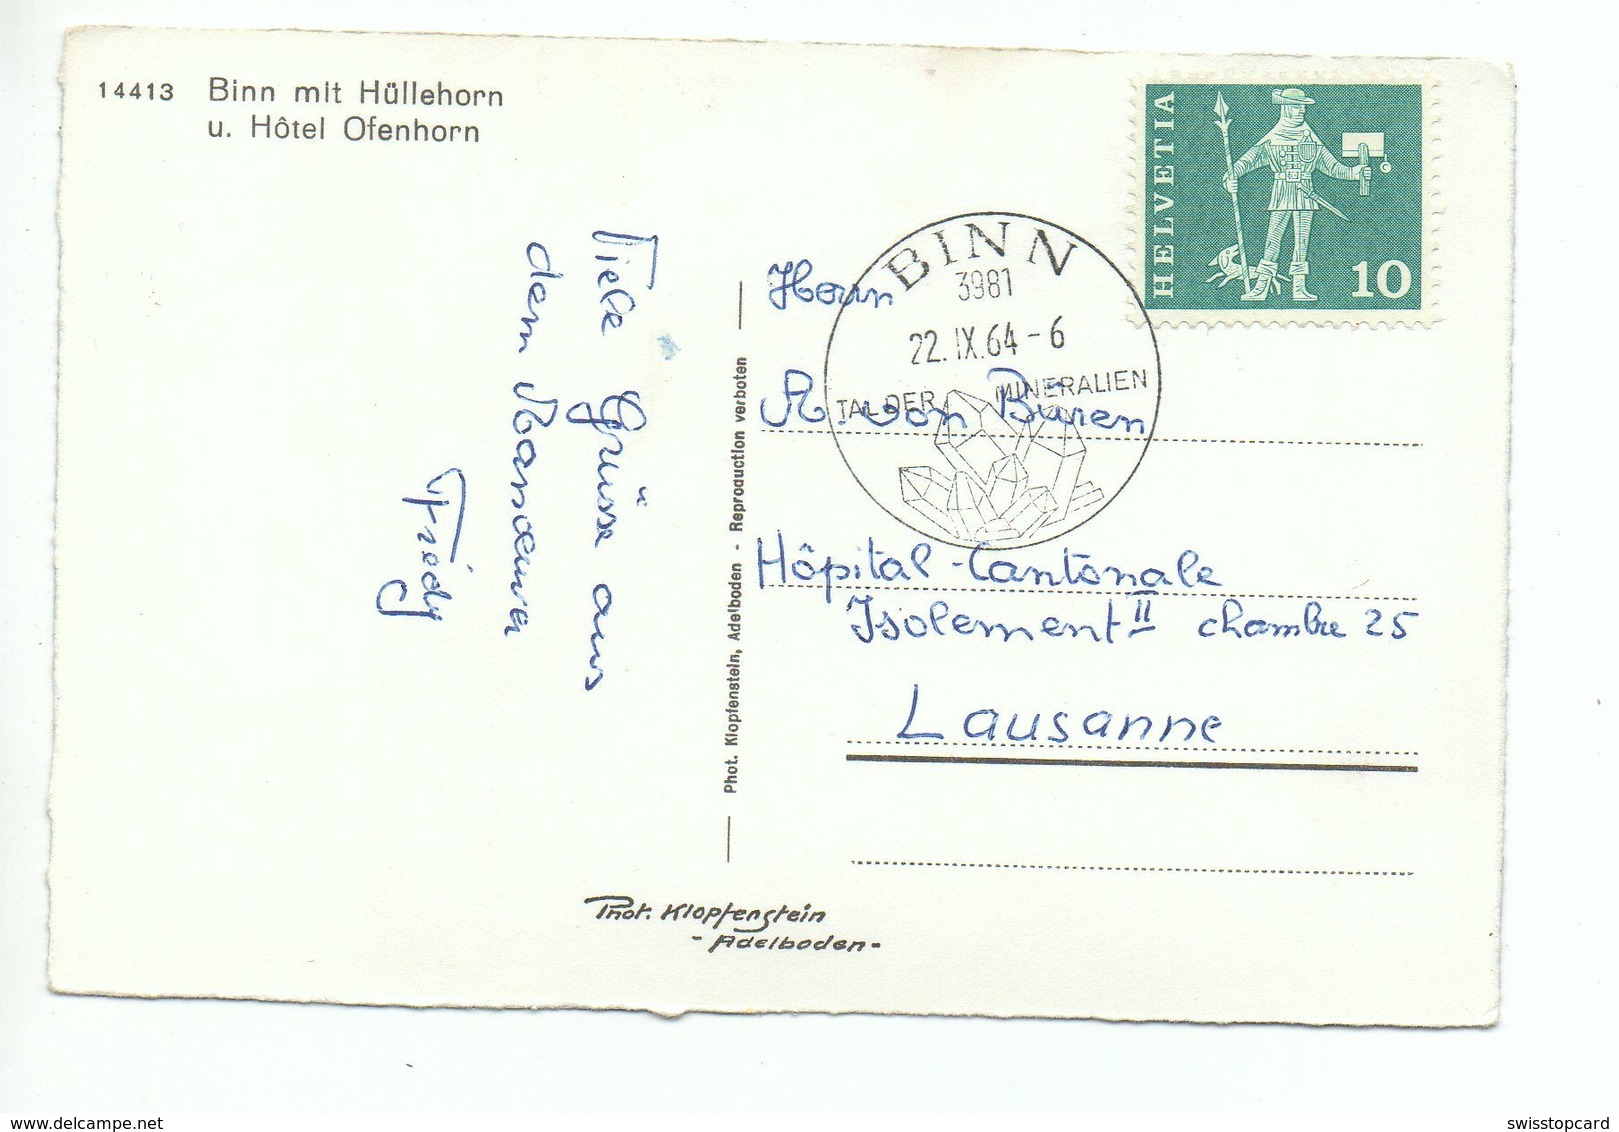 14413 Binn mit Hüllehorn
u. Hôtel Ofenhorn
HELVETIA
10
BINN
3981
22.IX.64-6
TAL DER MINERALIEN
Viele Grüsse aus
dem
Friedy
Herrn
A. von Büren
Hôpital-Cantonale
Isolement II chambre 25
Lausanne
Phot. Klopfenstein, Adelboden - Reproduction verboten
Phot. Klopfenstein
- Adelboden -
swisstopcard